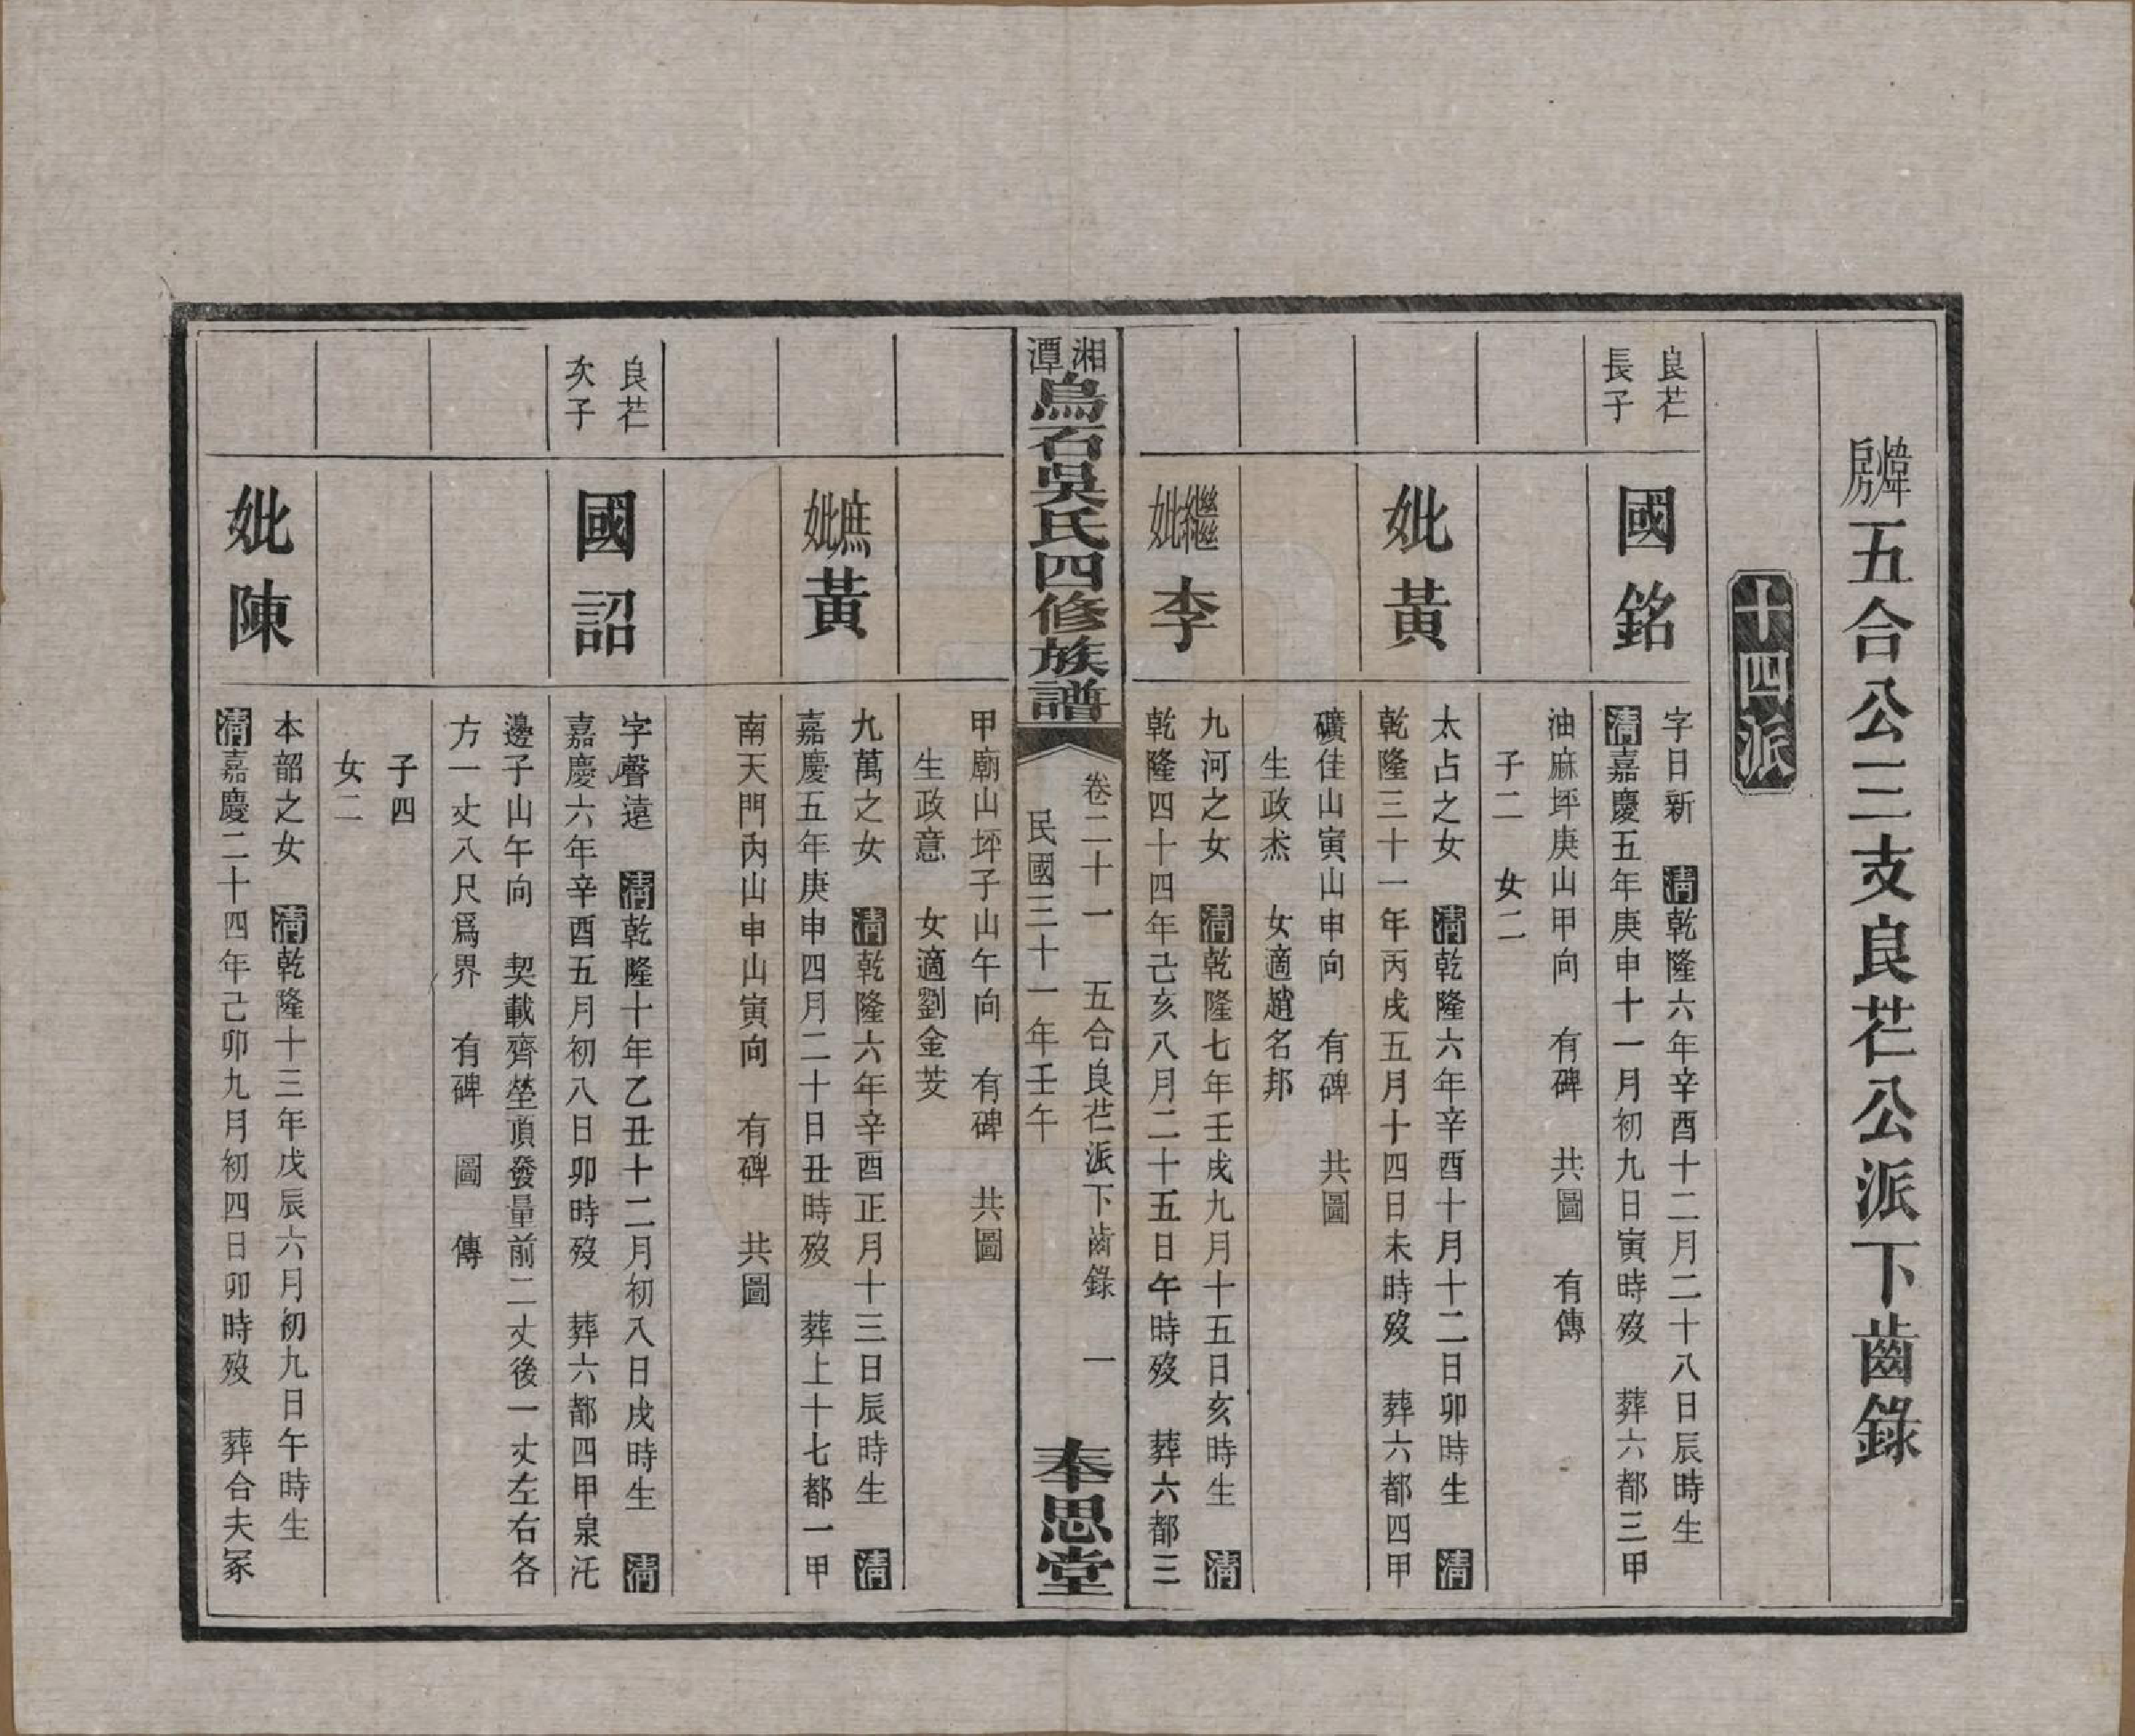 煒房五合公三支良芢公派下齒錄
十四派
良芢
長子
國銘
字日新　清乾隆六年辛酉十二月二十八日辰時生
清嘉慶五年庚申十一月初九日寅時歿　葬六都三甲
油麻坪庚山甲向　有碑　共圖　有傳
子二　女二
妣黃
太占之女　清乾隆六年辛酉十月十二日卯時生　清
乾隆三十一年丙戌五月十四日未時歿　葬六都四甲
礦佳山寅山申向　有碑　共圖
生政杰　女適趙名邦
繼妣李
九河之女　清乾隆七年壬戌九月十五日亥時生　清
乾隆四十四年己亥八月二十五日午時歿　葬六都三
湘潭烏石吳氏四修族譜
卷二十一　五合良芢派下齒錄　一
民國三十一年壬午
奉思堂
甲廟山坪子山午向　有碑　共圖
生政意　女適劉金芰
庶妣黃
九萬之女　清乾隆六年辛酉正月十三日辰時生　清
嘉慶五年庚申四月二十日丑時歿　葬上十七都一甲
南天門內山申山寅向　有碑　共圖
良芢
次子
國詔
字聲遠　清乾隆十年乙丑十二月初八日戌時生　清
嘉慶六年辛酉五月初八日卯時歿　葬六都四甲泉汑
邊子山午向　契載齊塋頂發量前二丈後一丈左右各
方一丈八尺爲界　有碑　圖　傳
子四
女二
妣陳
本韶之女　清乾隆十三年戊辰六月初九日午時生
清嘉慶二十四年己卯九月初四日卯時歿　葬合夫冢